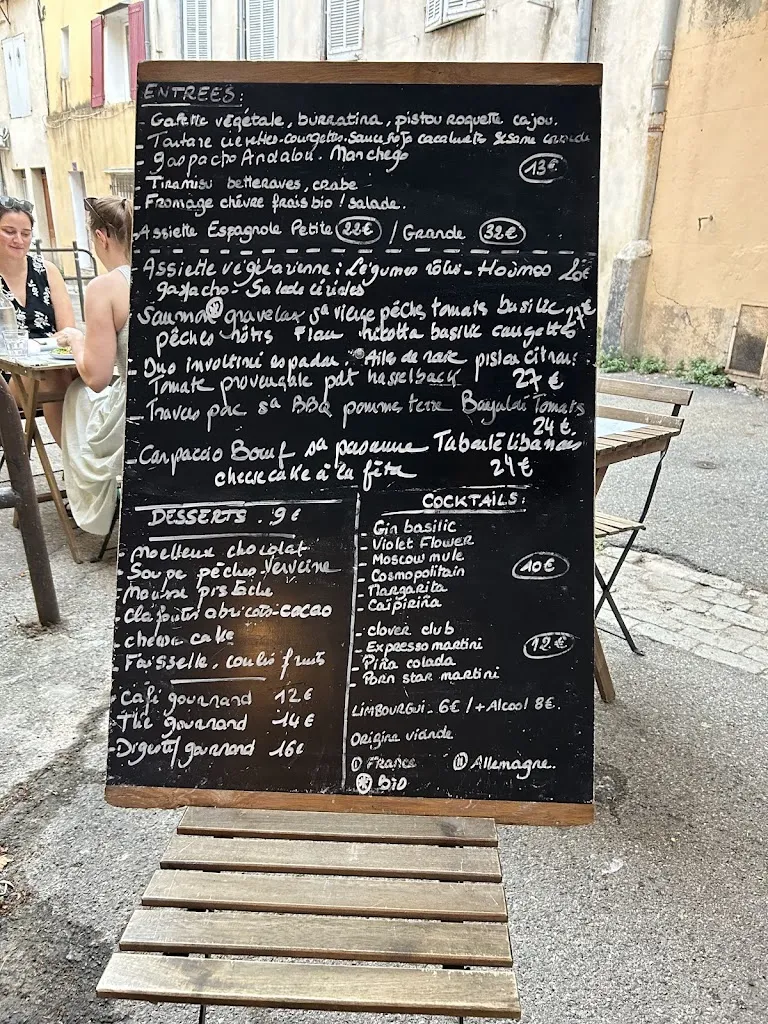 ENTREES:
- Galette végétale, burratina, pistou roquette cajou.
- Tartare crevettes-courgettes. Sauce soja cacahuète Sésame
- gaspacho Andalou. Manchego
13€
- Tiramisu betteraves, crabe
- Fromage chèvre frais bio / salade.
- Assiette Espagnole Petite 22€ / Grande 32€
- Assiette végétarienne: Légumes rôtis - Houmos
gaspacho - Salade céréales
- Saumon gravelax sa vierge pêche tomate basilic
pêches rôties Flan ricotta basilic courgettes
- Duo involtini espadon - Aile de raie pistou citron
Tomate provençale pdt hasselback 27€
- Travers porc sa BBQ pomme terre Bayaldi Tomates
24€
- Carpaccio Boeuf sa parmesane Taboulé libanais
cheesecake à la fêta 24€
DESSERTS. 9€
- Moelleux chocolat
- Soupe pêches Verveine
- Mousse pistache
- Clafoutis abricots-cacao
- cheese cake
- Faisselle, coulis fruits
- Café gourmand 12€
- Thé gourmand 14€
- Digestif gourmand 16€
COCKTAILS:
- Gin basilic
- Violet Flower
- Moscow mule
- Cosmopolitain
- Margarita
- Caïpiriña
10€
- clover club
- Expresso martini
- Piña colada
- Porn star martini
12€
LIMBOURGUI - 6€ / + Alcool 8€.
Origine viande
France
Allemagne.
Bio